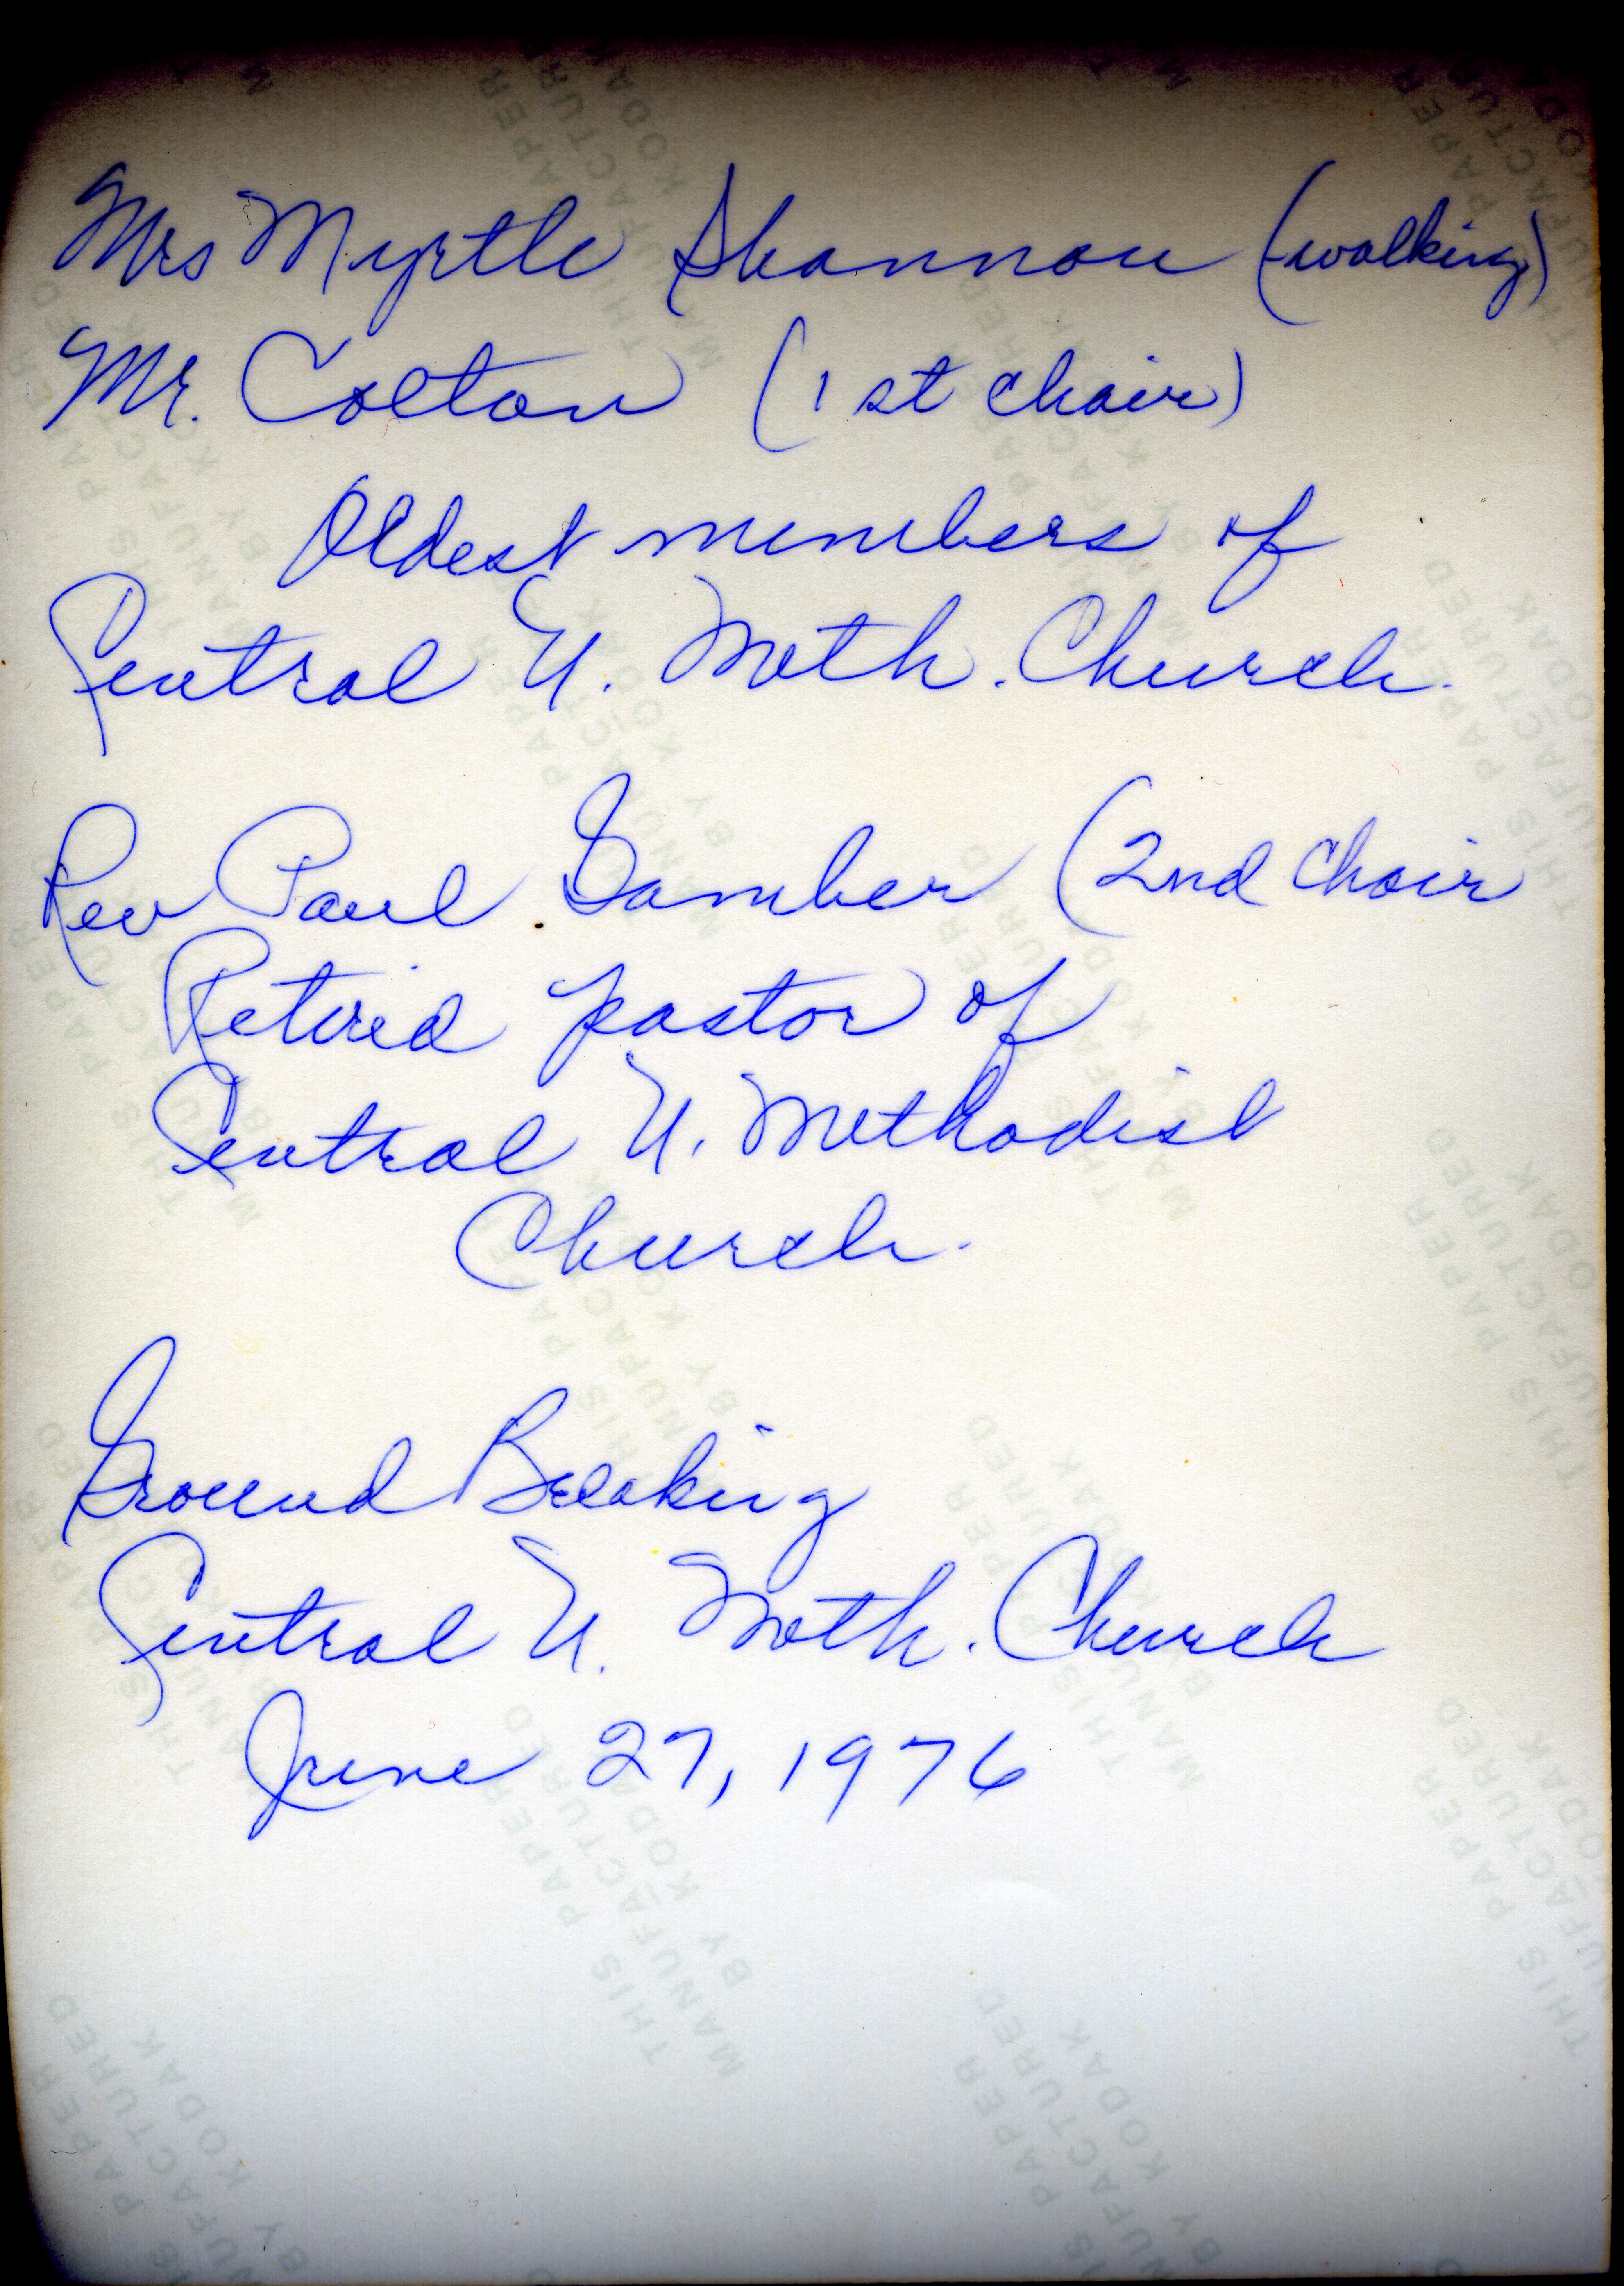 Mrs Myrtle Shannon (walking)
Mr. Colton (1st chair)
Oldest members of
Central U. Meth. Church.
Rev Paul Gamber (2nd chair
Retired pastor of
Central U. Methodist
Church.
Ground Breaking
Central U. Meth. Church
June 27, 1976
THIS PAPER
MANUFACTURED
BY KODAK